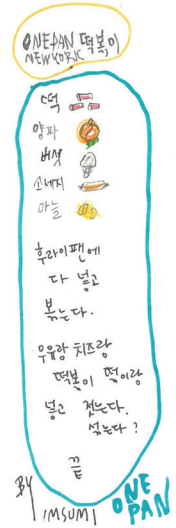 ONEPAN 떡볶이
NEWYORK
떡
양파
버섯
소세지
마늘
후라이팬에
다 넣고
볶는다.
우유랑 치즈랑
떡볶이 떡이랑
넣고 젓는다.
섞는다?
끝
BY IMSUMI
ONE PAN